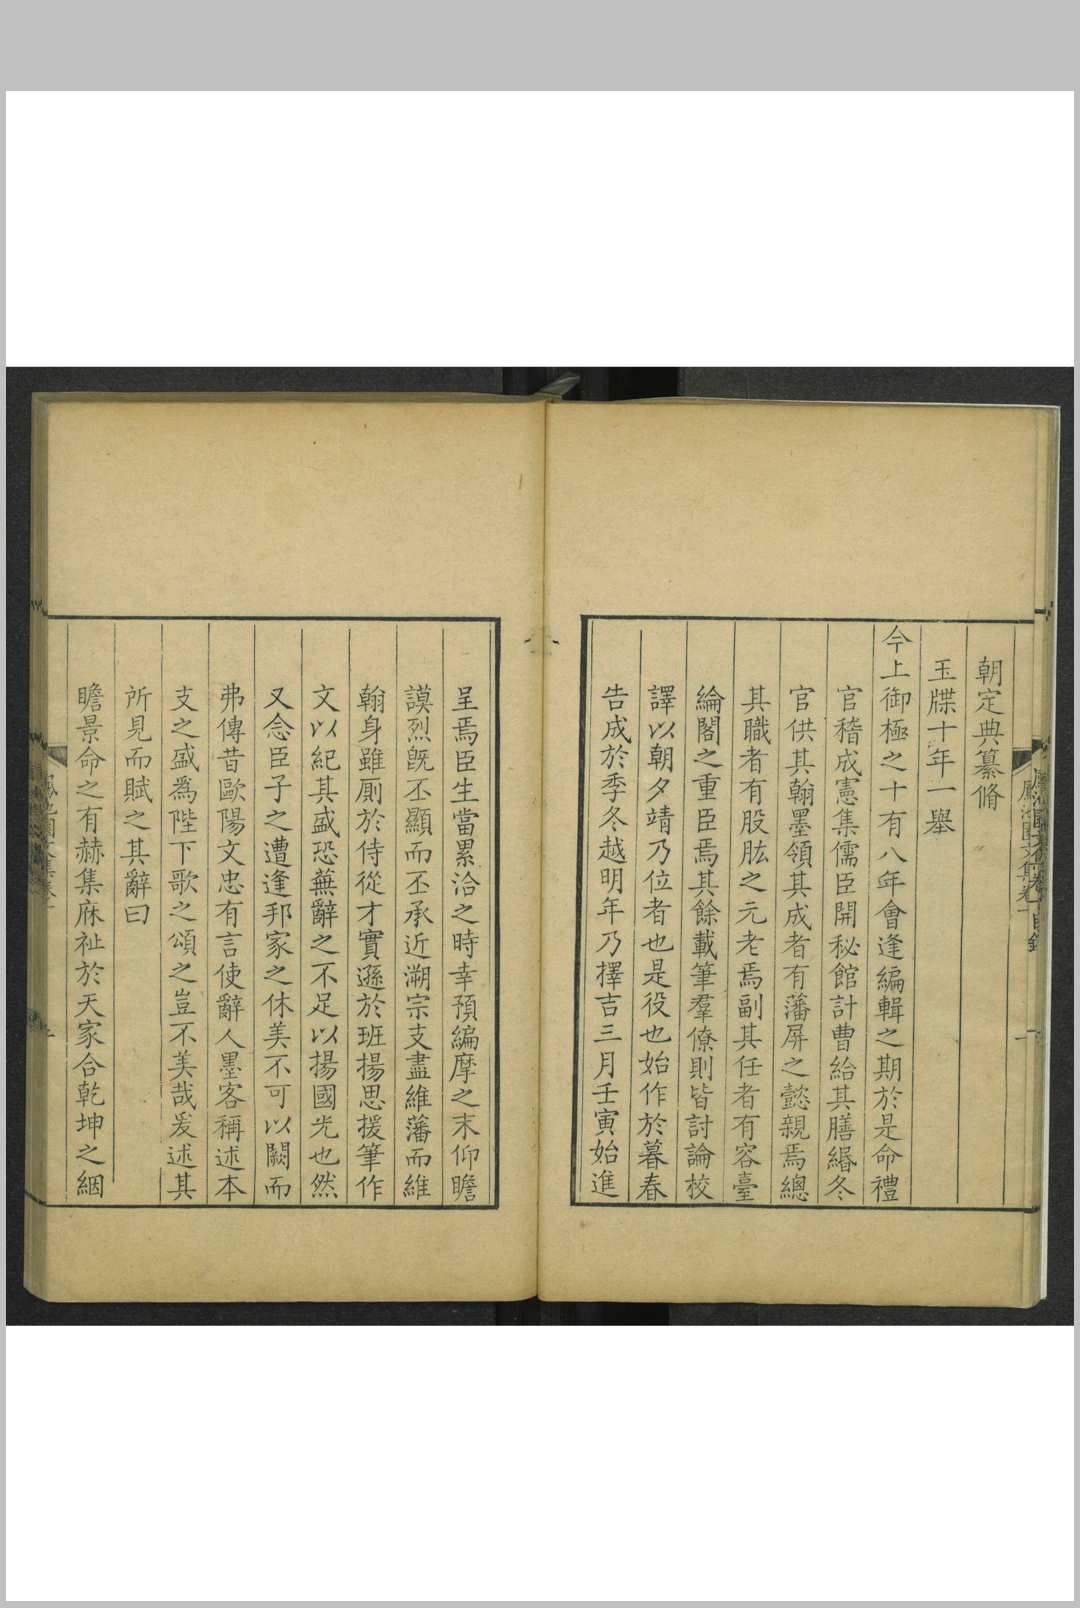 朝定典纂脩
玉牒十年一舉
今上御極之十有八年會逢編輯之期於是命禮
官稽成憲集儒臣開秘館計曹給其膳緡冬
官供其翰墨領其成者有藩屏之懿親焉總
其職者有股肱之元老焉副其任者有容臺
綸閣之重臣焉其餘載筆羣僚則皆討論校
譯以朝夕靖乃位者也是役也始作於暮春
告成於季冬越明年乃擇吉三月壬寅始進
呈焉臣生當累洽之時幸預編摩之末仰瞻
謨烈既丕顯而丕承近溯宗支盡維藩而維
翰身雖厠於侍從才實遜於班揚思援筆作
文以紀其盛恐蕪辭之不足以揚國光也然
又念臣子之遭逢邦家之休美不可以闕而
弗傳昔歐陽文忠有言使辭人墨客稱述本
支之盛爲陛下歌之頌之豈不美哉爰述其
所見而賦之其辭曰
瞻景命之有赫集庥祉於天家合乾坤之絪